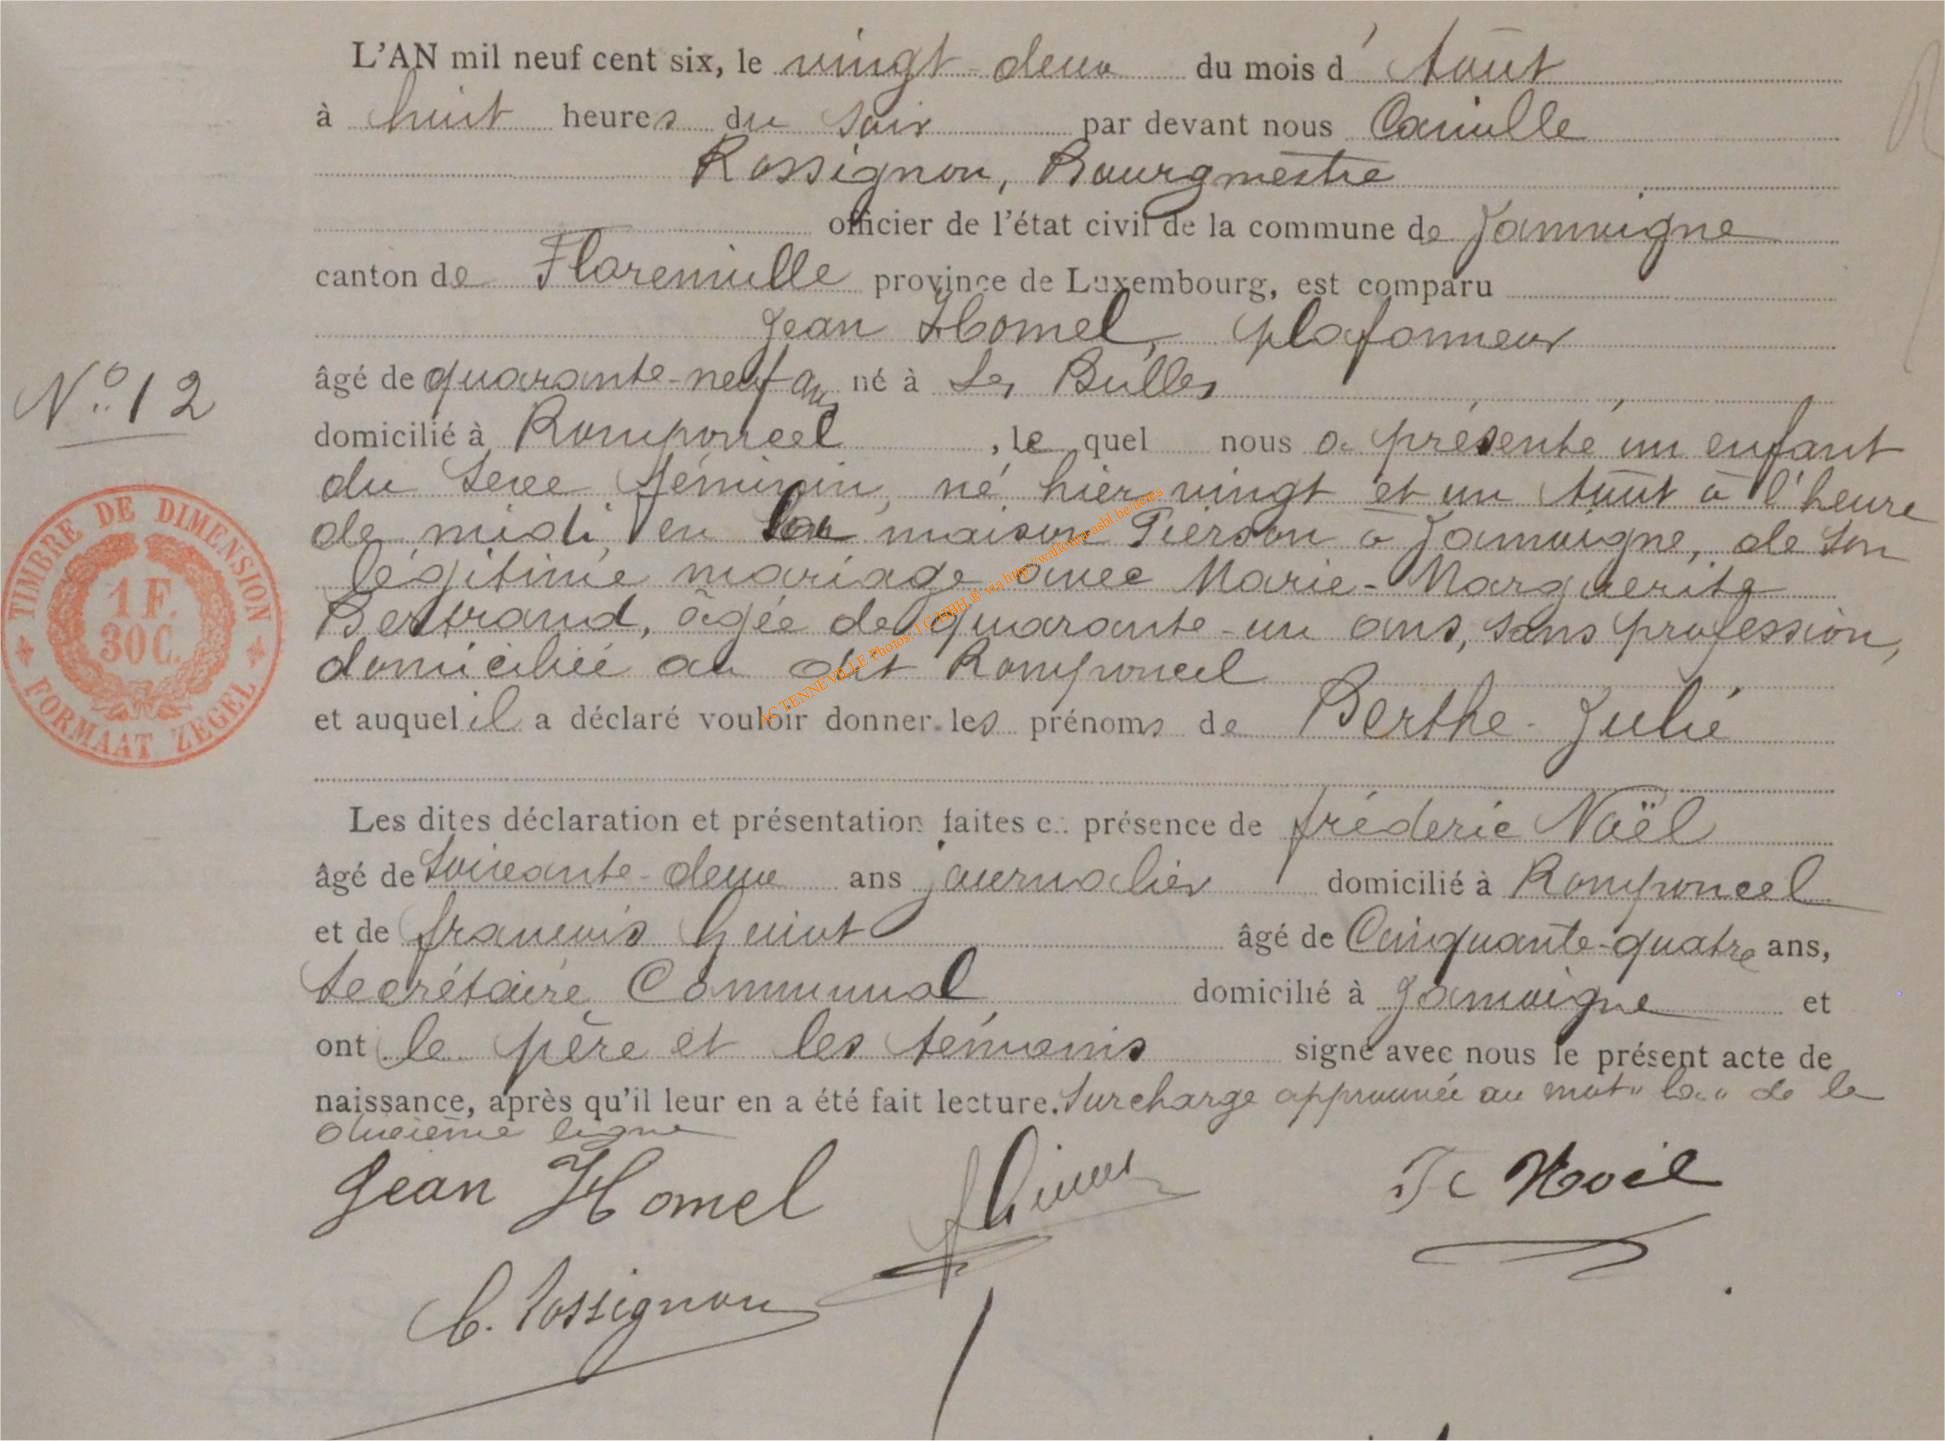 L'AN mil neuf cent six, le vingt-deux du mois d'Août
à huit heures du soir par devant nous Camille
Rossignon, Bourgmestre
officier de l'état civil de la commune de Jamoigne
canton de Florenville province de Luxembourg, est comparu
Jean Homel, plafonneur
âgé de quarante-neuf ans né à Les Bulles
N° 12
domicilié à Romponcel, le quel nous a présenté un enfant
du sexe féminin, né hier vingt et un Août à l'heure
de midi, en la maison Pierson à Jamoigne, de son
légitime mariage avec Marie-Marguerite
Bertrand, âgée de quarante-un ans, sans profession,
domiciliée au dit Romponcel
et auquel il a déclaré vouloir donner les prénoms de Berthe-Julie
Les dites déclaration et présentation faites en présence de frédéric Noël
âgé de soixante-deux ans journalier domicilié à Romponcel
et de françois âgé de Cinquante-quatre ans,
secrétaire Communal domicilié à Jamoigne et
ont le père et les témoins signé avec nous le présent acte de
naissance, après qu'il leur en a été fait lecture. Surcharge approuvée au mot "la" de la
onzième ligne
Jean Homel
Fc Noël
C. Rossignon
TIMBRE DE DIMENSION
1 F.
30 C.
FORMAAT ZEGEL